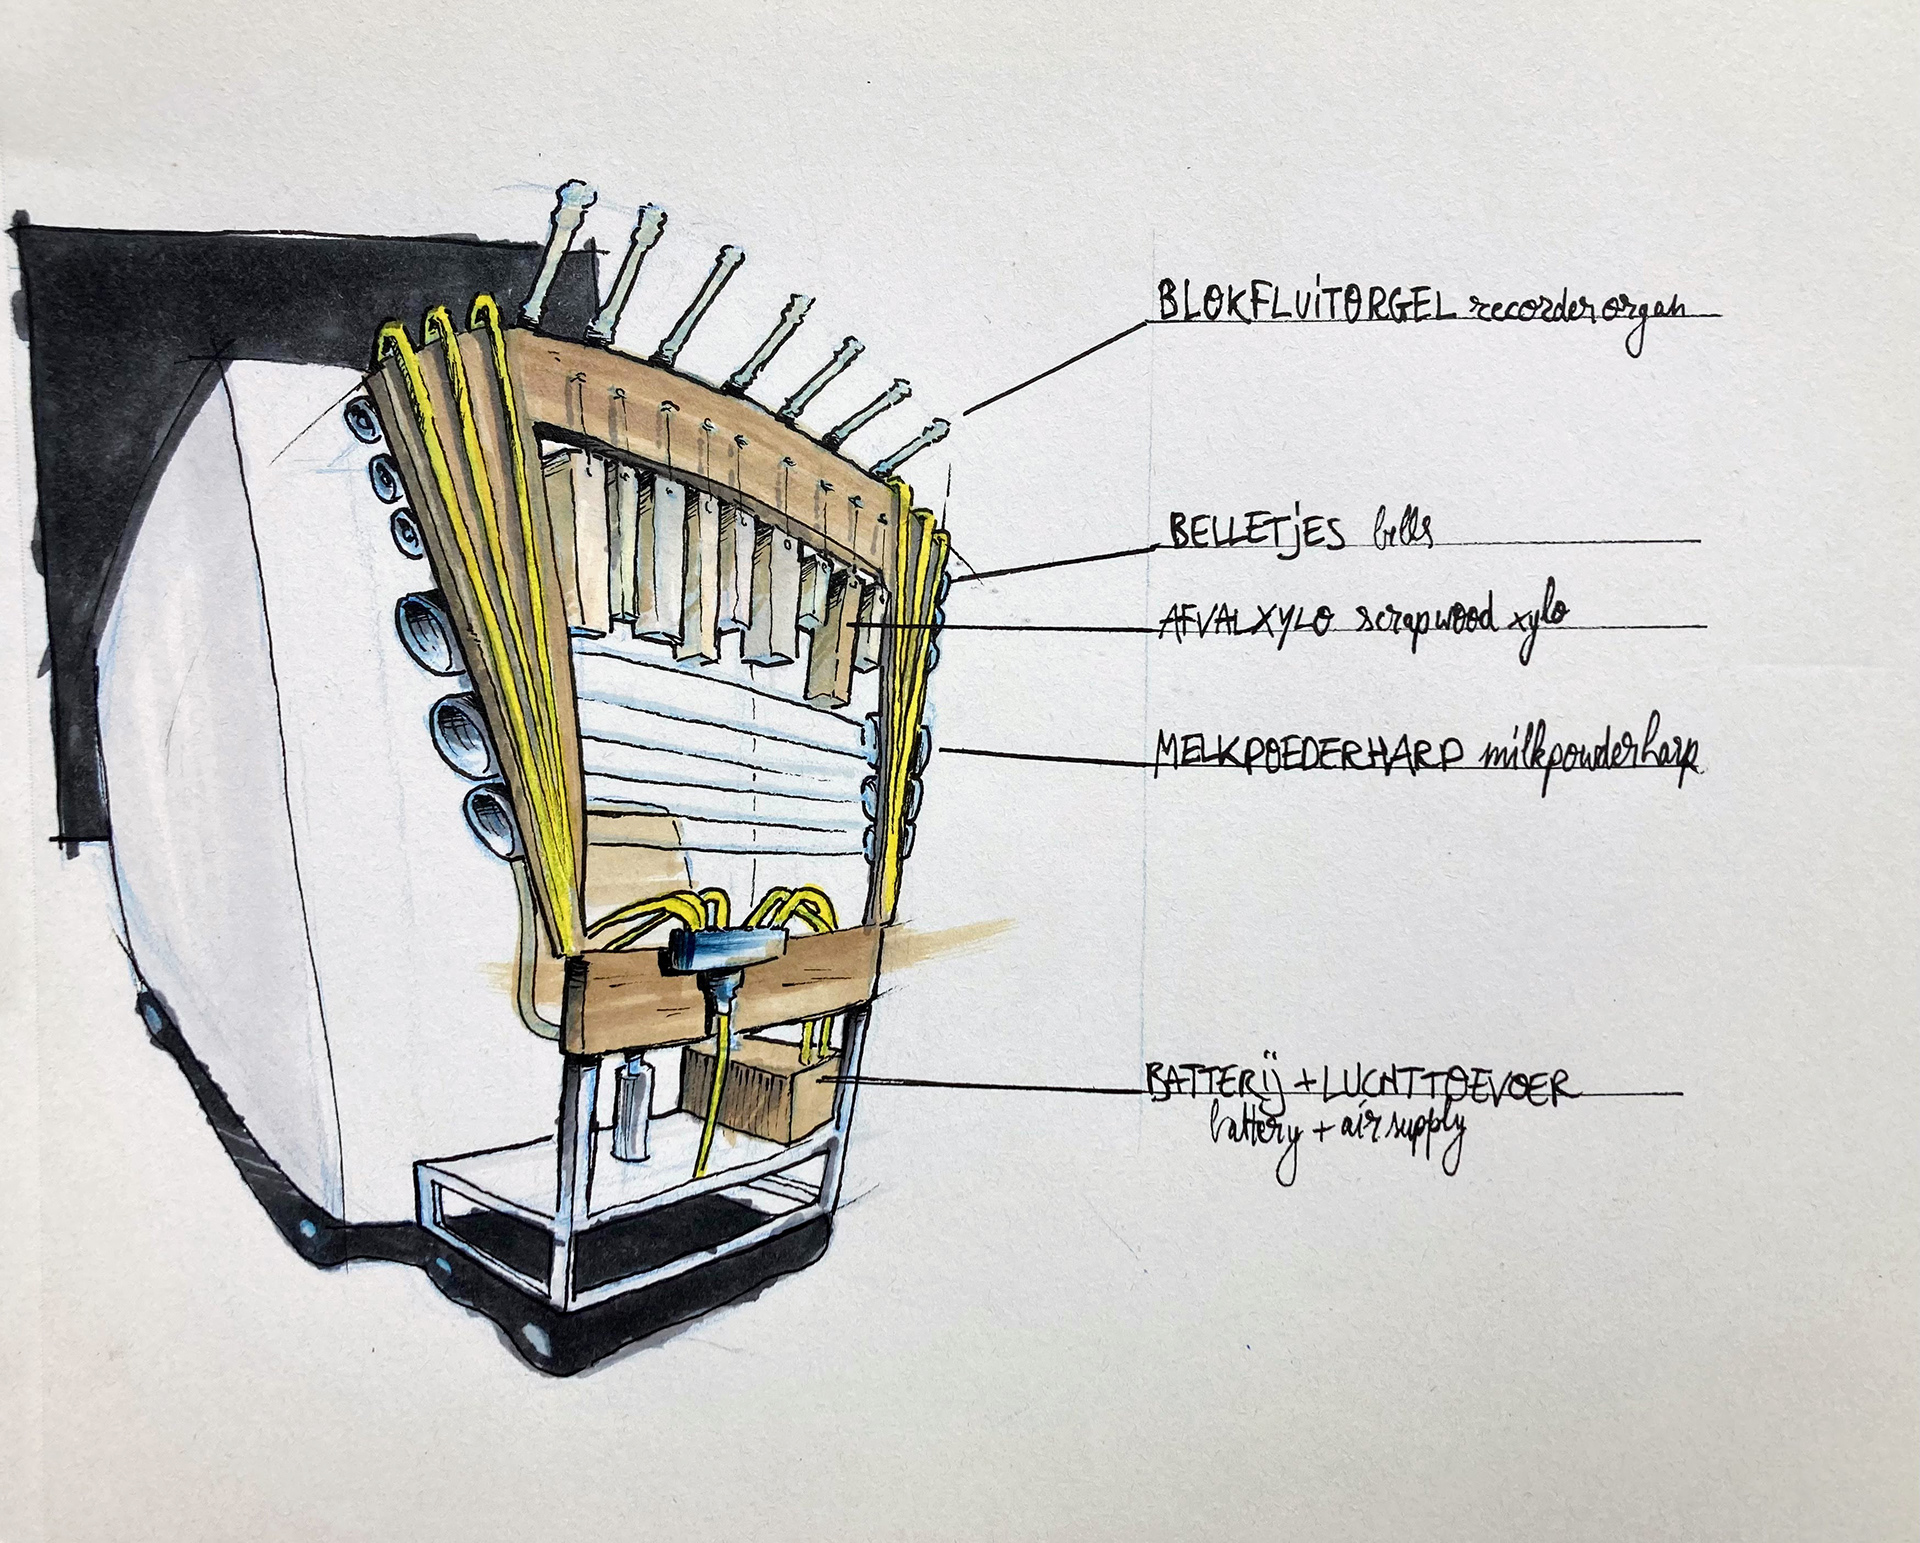 BLOKFLUiTORGEL recorder organ
BELLETjES bells
AFVALXYLO scrapwood xylo
MELKPOEDERHARP milkpowderharp
BATTERij + LUCHTTOEVOER
battery + air supply